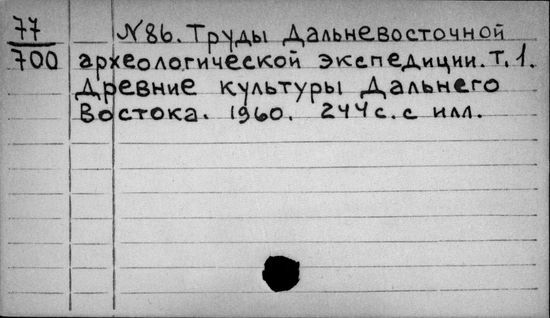 77 N86. Труды Дальневосточной
700 археологической экспедиции. Т. 1.
Древние культуры Дальнего
Востока. 1960. 244 с. с илл.